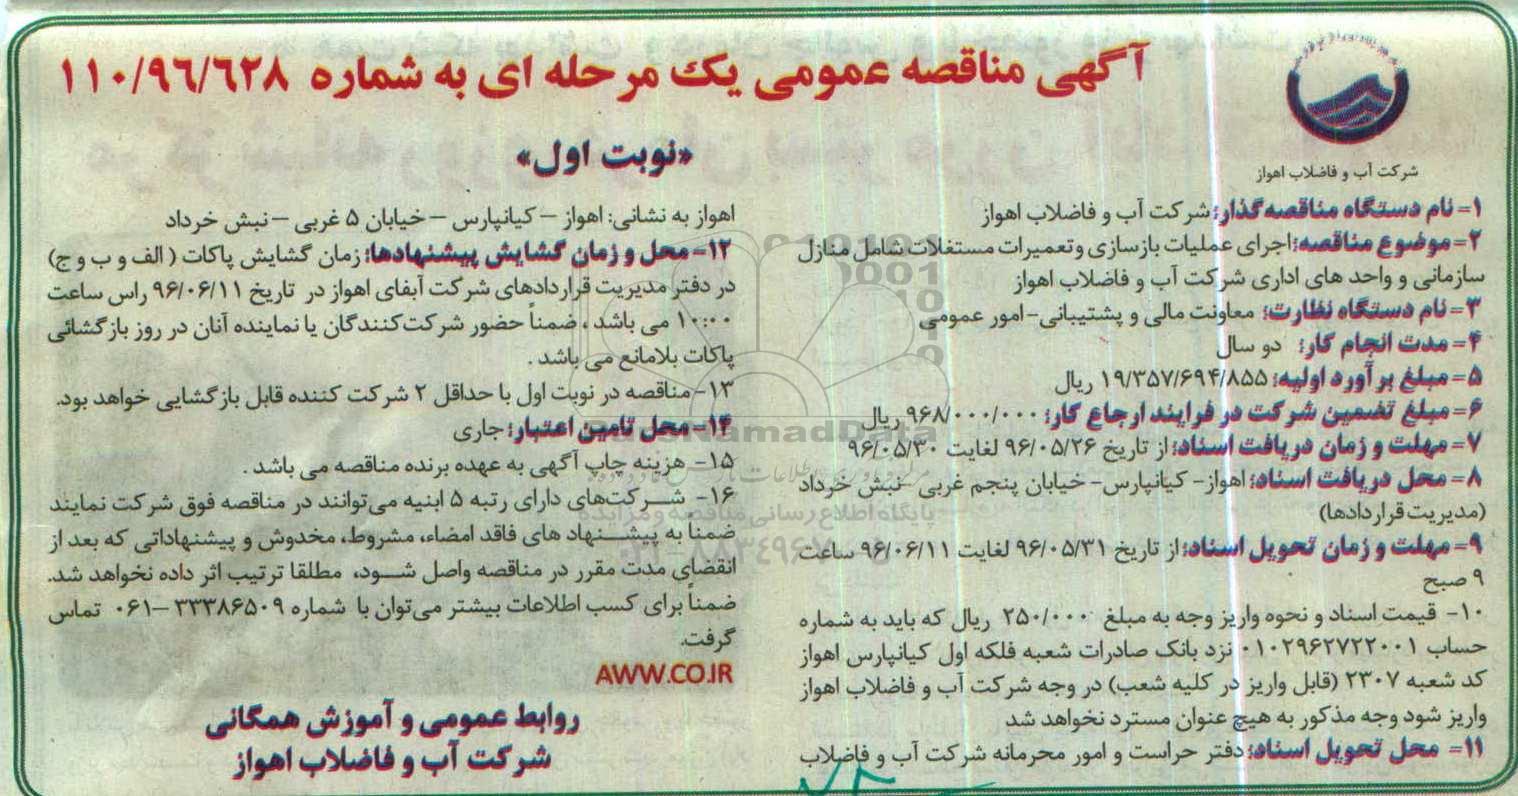 آگهی مناقصه عمومی یک مرحله ای به شماره ۱۱۰/۹۶/۶۲۸
«نوبت اول»
شرکت آب و فاضلاب اهواز
۱- نام دستگاه مناقصه گذار: شرکت آب و فاضلاب اهواز
۲- موضوع مناقصه: اجرای عملیات بازسازی وتعمیرات مستغلات شامل منازل
سازمانی و واحد های اداری شرکت آب و فاضلاب اهواز
۳- نام دستگاه نظارت: معاونت مالی و پشتیبانی- امور عمومی
۴- مدت انجام کار: دو سال
۵- مبلغ برآورد اولیه: ۱۹/۳۵۷/۶۹۴/۸۵۵ ریال
۶- مبلغ تضمین شرکت در فرایند ارجاع کار: ۹۶۸/۰۰۰/۰۰۰ ریال
۷- مهلت و زمان دریافت اسناد: از تاریخ ۹۶/۰۵/۲۶ لغایت ۹۶/۰۵/۳۰
۸- محل دریافت اسناد: اهواز- کیانپارس- خیابان پنجم غربی -نبش خرداد
(مدیریت قراردادها)
۹- مهلت و زمان تحویل اسناد: از تاریخ ۹۶/۰۵/۳۱ لغایت ۹۶/۰۶/۱۱ ساعت
۹ صبح
۱۰- قیمت اسناد و نحوه واریز وجه به مبلغ ۲۵۰/۰۰۰ ریال که باید به شماره
حساب ۰۱۰۲۹۶۲۷۲۲۰۰۱ نزد بانک صادرات شعبه فلکه اول کیانپارس اهواز
کد شعبه ۲۳۰۷ (قابل واریز در کلیه شعب) در وجه شرکت آب و فاضلاب اهواز
واریز شود وجه مذکور به هیچ عنوان مسترد نخواهد شد
۱۱- محل تحویل اسناد: دفتر حراست و امور محرمانه شرکت آب و فاضلاب
اهواز به نشانی: اهواز – کیانپارس – خیابان ۵ غربی – نبش خرداد
۱۲- محل و زمان گشایش پیشنهادها: زمان گشایش پاکات ( الف و ب و ج)
در دفتر مدیریت قراردادهای شرکت آبفای اهواز در تاریخ ۹۶/۰۶/۱۱ راس ساعت
۱۰:۰۰ می باشد ، ضمناً حضور شرکت‌کنندگان یا نماینده آنان در روز بازگشائی
پاکات بلامانع می باشد .
۱۳- مناقصه در نوبت اول با حداقل ۲ شرکت کننده قابل بازگشایی خواهد بود.
۱۴- محل تامین اعتبار: جاری
۱۵- هزینه چاپ آگهی به عهده برنده مناقصه می باشد .
۱۶- شرکت‌های دارای رتبه ۵ ابنیه می‌توانند در مناقصه فوق شرکت نمایند
ضمناً به پیشنهاد های فاقد امضاء، مشروط، مخدوش و پیشنهاداتی که بعد از
انقضای مدت مقرر در مناقصه واصل شود، مطلقا ترتیب اثر داده نخواهد شد.
ضمناً برای کسب اطلاعات بیشتر می‌توان با شماره ۳۳۳۸۶۵۰۹ – ۰۶۱ تماس
گرفت.
AWW.CO.IR
روابط عمومی و آموزش همگانی
شرکت آب و فاضلاب اهواز
ParsNamadData
پایگاه اطلاع رسانی مناقصه و مزایده